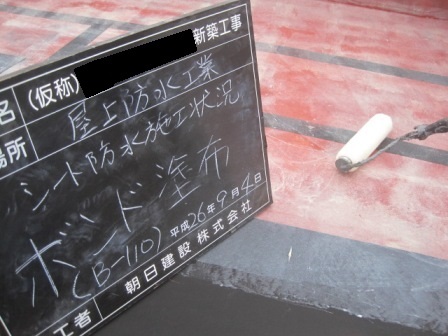 名 (仮称) 新築工事
場所 屋上防水工業
シート防水施工状況
ボンド塗布
(B-110) 平成26年9月4日
工者 朝日建設株式会社